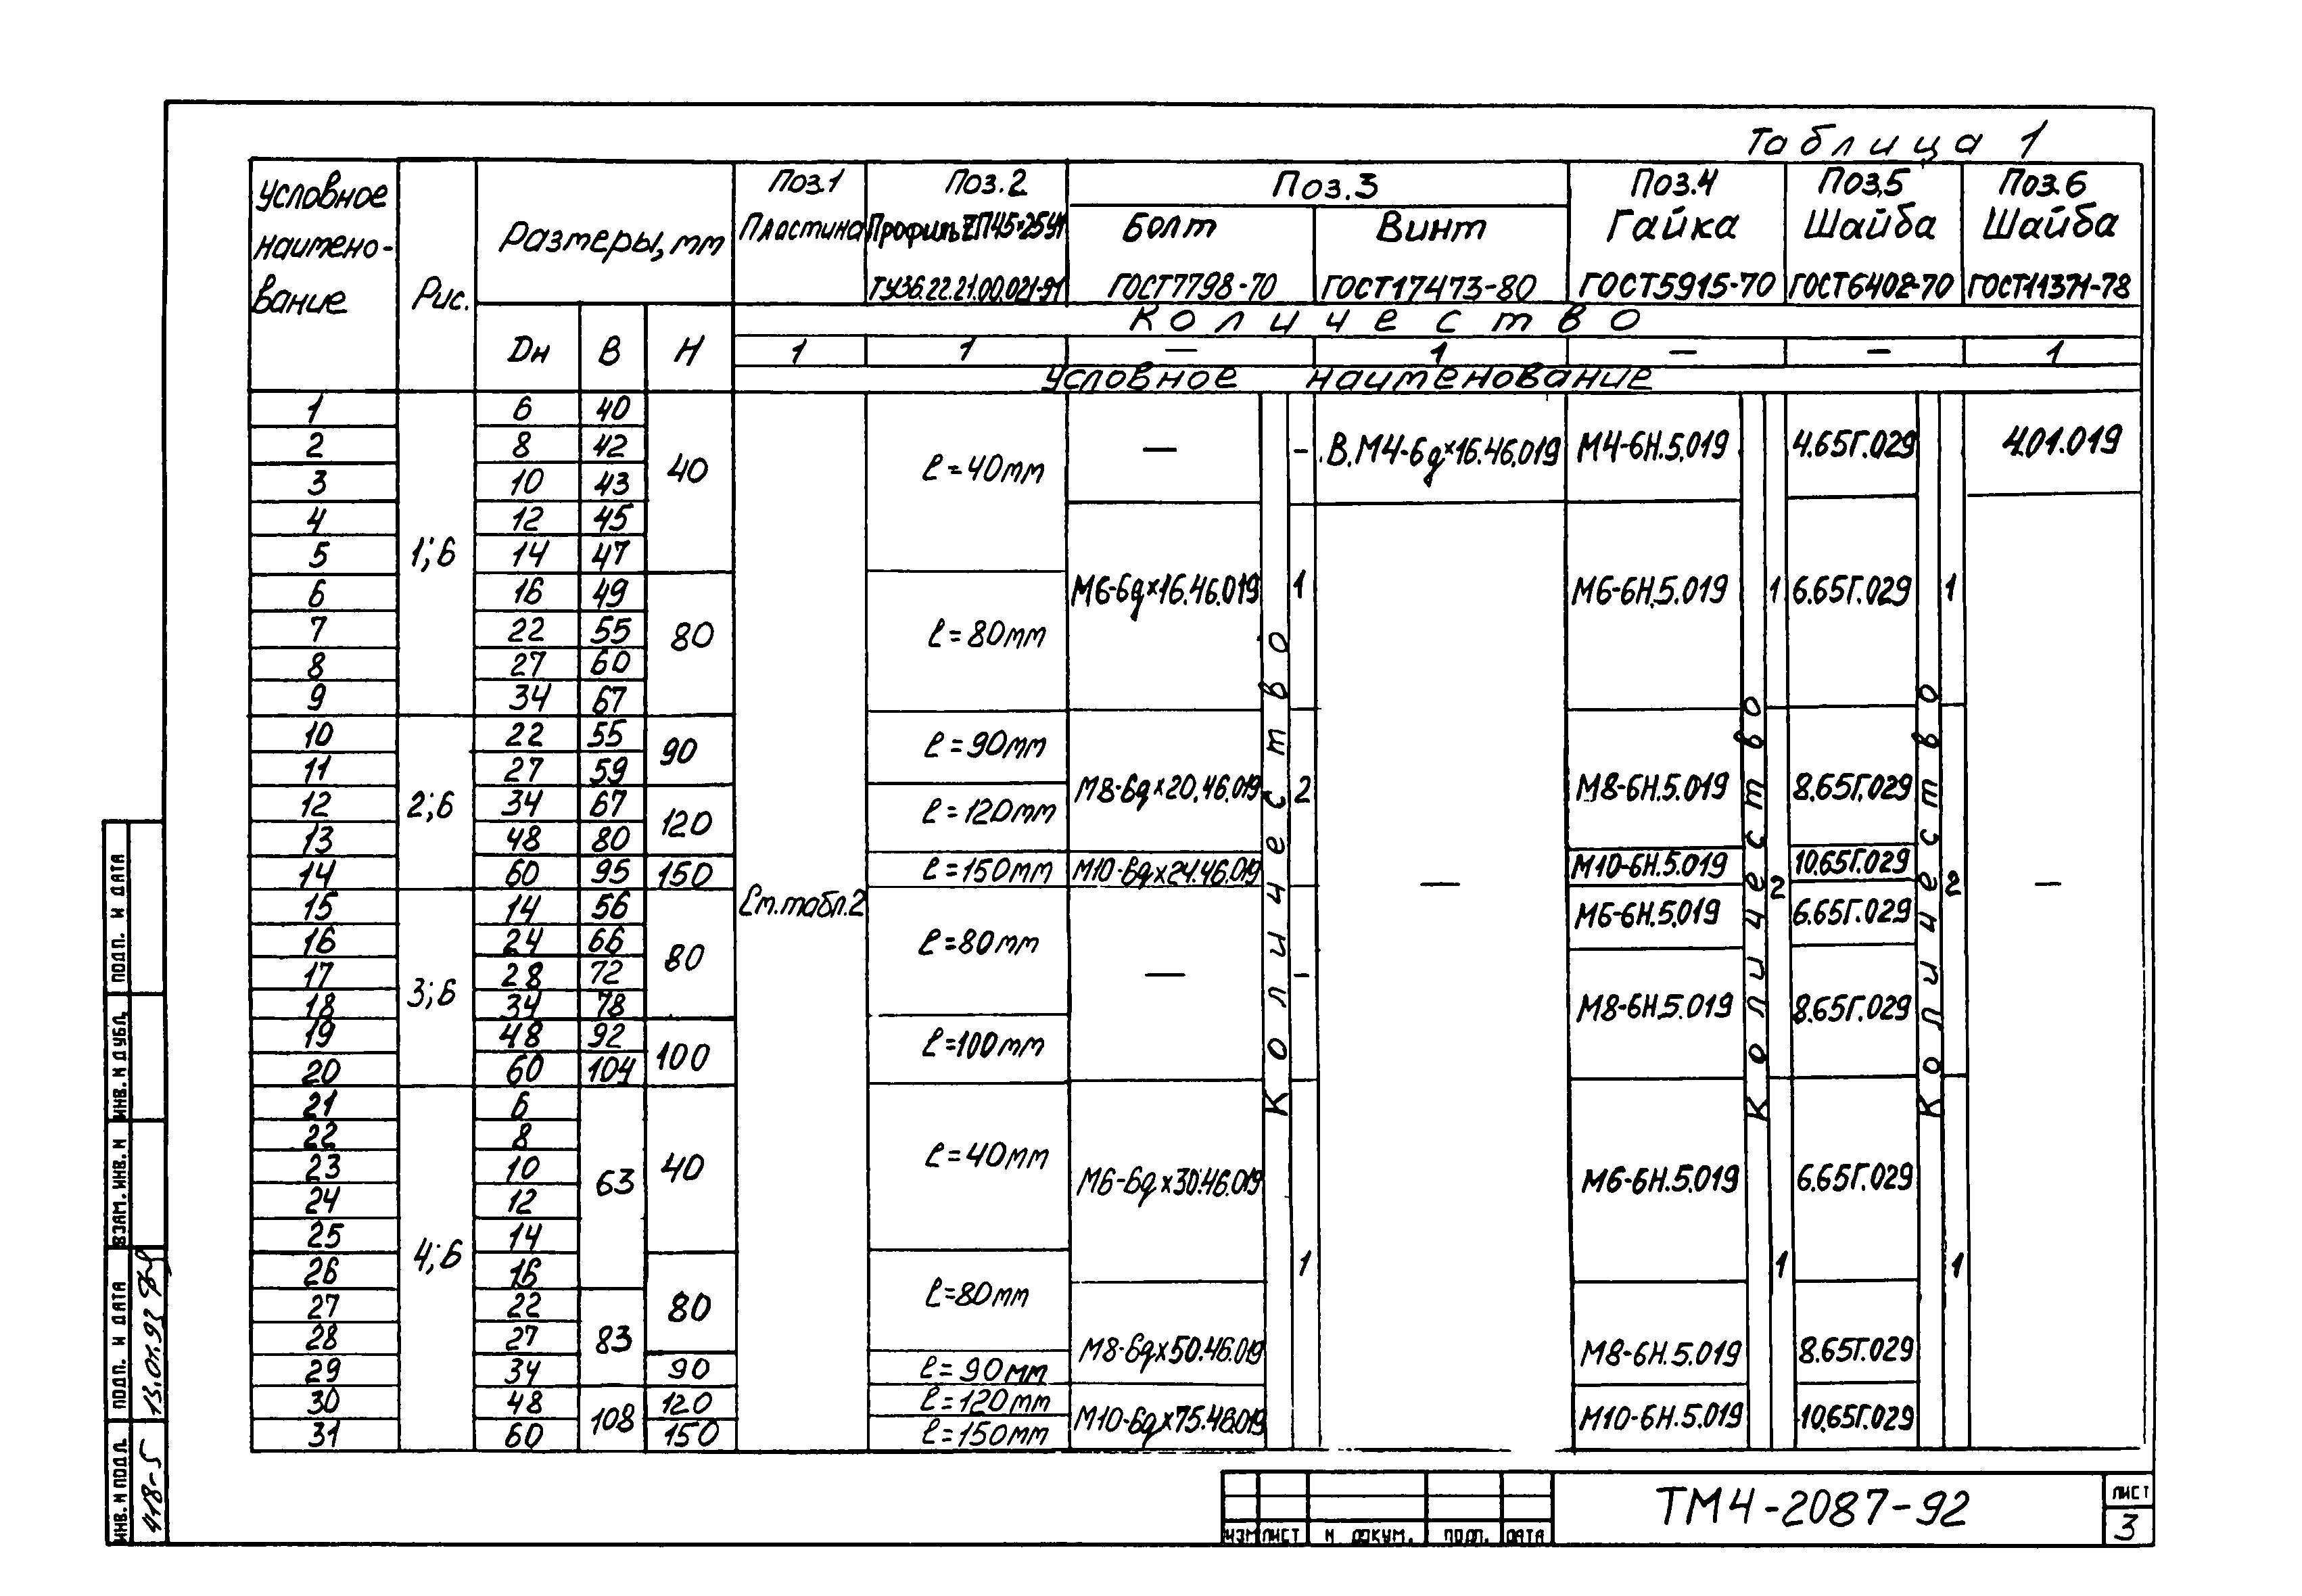 Таблица 1
Условное наимено-вание
Рис.
Размеры, мм
Поз.1 Пластина
Поз.2 Профиль
ТУ36.22.21.00.021-91
Поз.3
Болт ГОСТ7798-70
Винт ГОСТ17473-80
Поз.4 Гайка ГОСТ5915-70
Поз.5 Шайба ГОСТ6402-70
Поз.6 Шайба ГОСТ11371-78
Дн В Н
Количество
1 1 — 1 — — 1
Условное наименование
1 6 40
2 8 42
3 10 43
4 12 45
5 14 47
6 16 49
7 22 55
8 27 60
9 34 67
10 22 55
11 27 59
12 34 67
13 48 80
14 60 95 150
15 14 56
16 24 66
17 28 72
18 34 78
19 48 92
20 60 104
21 6
22 8
23 10
24 12
25 14
26 16
27 22
28 27
29 34 90
30 48 120
31 60 150
1;6
2;6
3;6
4;6
63
83
108
40
80
90
120
80
100
40
80
См.табл.2
ℓ=40мм
ℓ=80мм
ℓ=90мм
ℓ=120мм
ℓ=150мм
ℓ=80мм
ℓ=100мм
ℓ=40мм
ℓ=80мм
ℓ=90мм
ℓ=120мм
ℓ=150мм
—
М6-6g×16.46.019
М8-6g×20.46.019
М10-6g×24.46.019
—
М6-6g×30.46.019
М8-6g×50.46.019
М10-6g×75.46.019
Количество
-
1
2
-
1
В.М4-6g×16.46.019
—
М4-6Н.5.019
М6-6Н.5.019
М8-6Н.5.019
М10-6Н.5.019
М6-6Н.5.019
М8-6Н.5.019
М6-6Н.5.019
М8-6Н.5.019
М10-6Н.5.019
Количество
1
2
1
4.65Г.029
6.65Г.029
8.65Г.029
10.65Г.029
6.65Г.029
8.65Г.029
6.65Г.029
8.65Г.029
10.65Г.029
Количество
1
2
1
4.01.019
—
ПОДП. И ДАТА
ИНВ. N ДУБЛ.
ВЗАМ. ИНВ. N
ПОДП. И ДАТА
13.01.93
ИНВ. N ПОДЛ.
418-5
ИЗМ ЛИСТ N ДОКУМ. ПОДП. ДАТА
ТМ4-2087-92
ЛИСТ
3